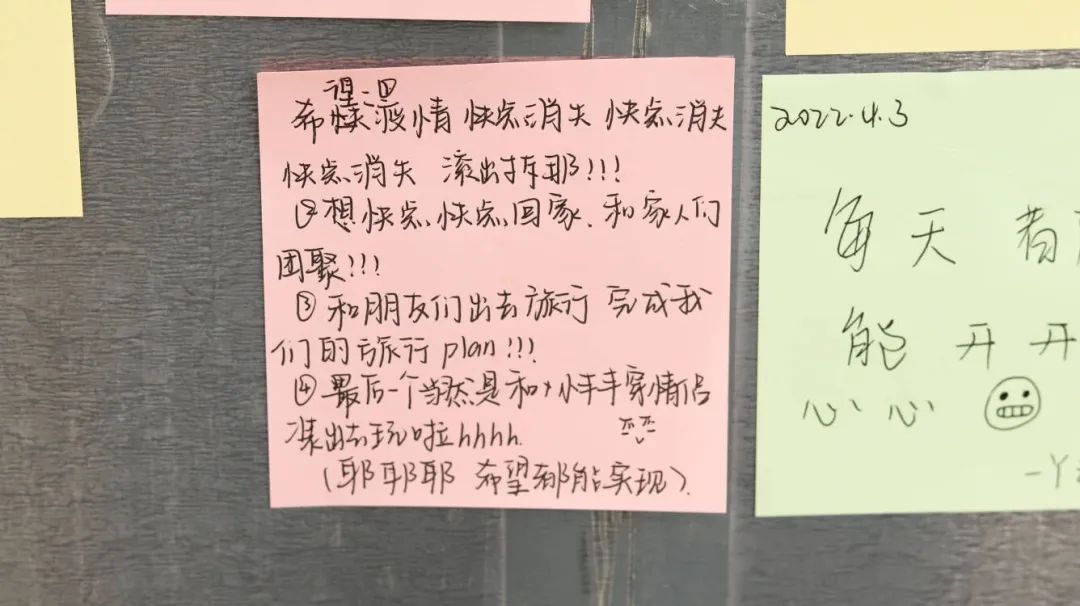 希望疫情 快点消失 快点消失
快点消失 滚出!!!
②想快点快点回家、和家人们
团聚!!!
③和朋友们出去旅行 完成我
们的旅行plan!!!
④最后一个当然是和小丰丰穿情侣
出去玩啦hhhh
(耶耶耶 希望都能实现).
2022.4.3
每天都
能开开
心心